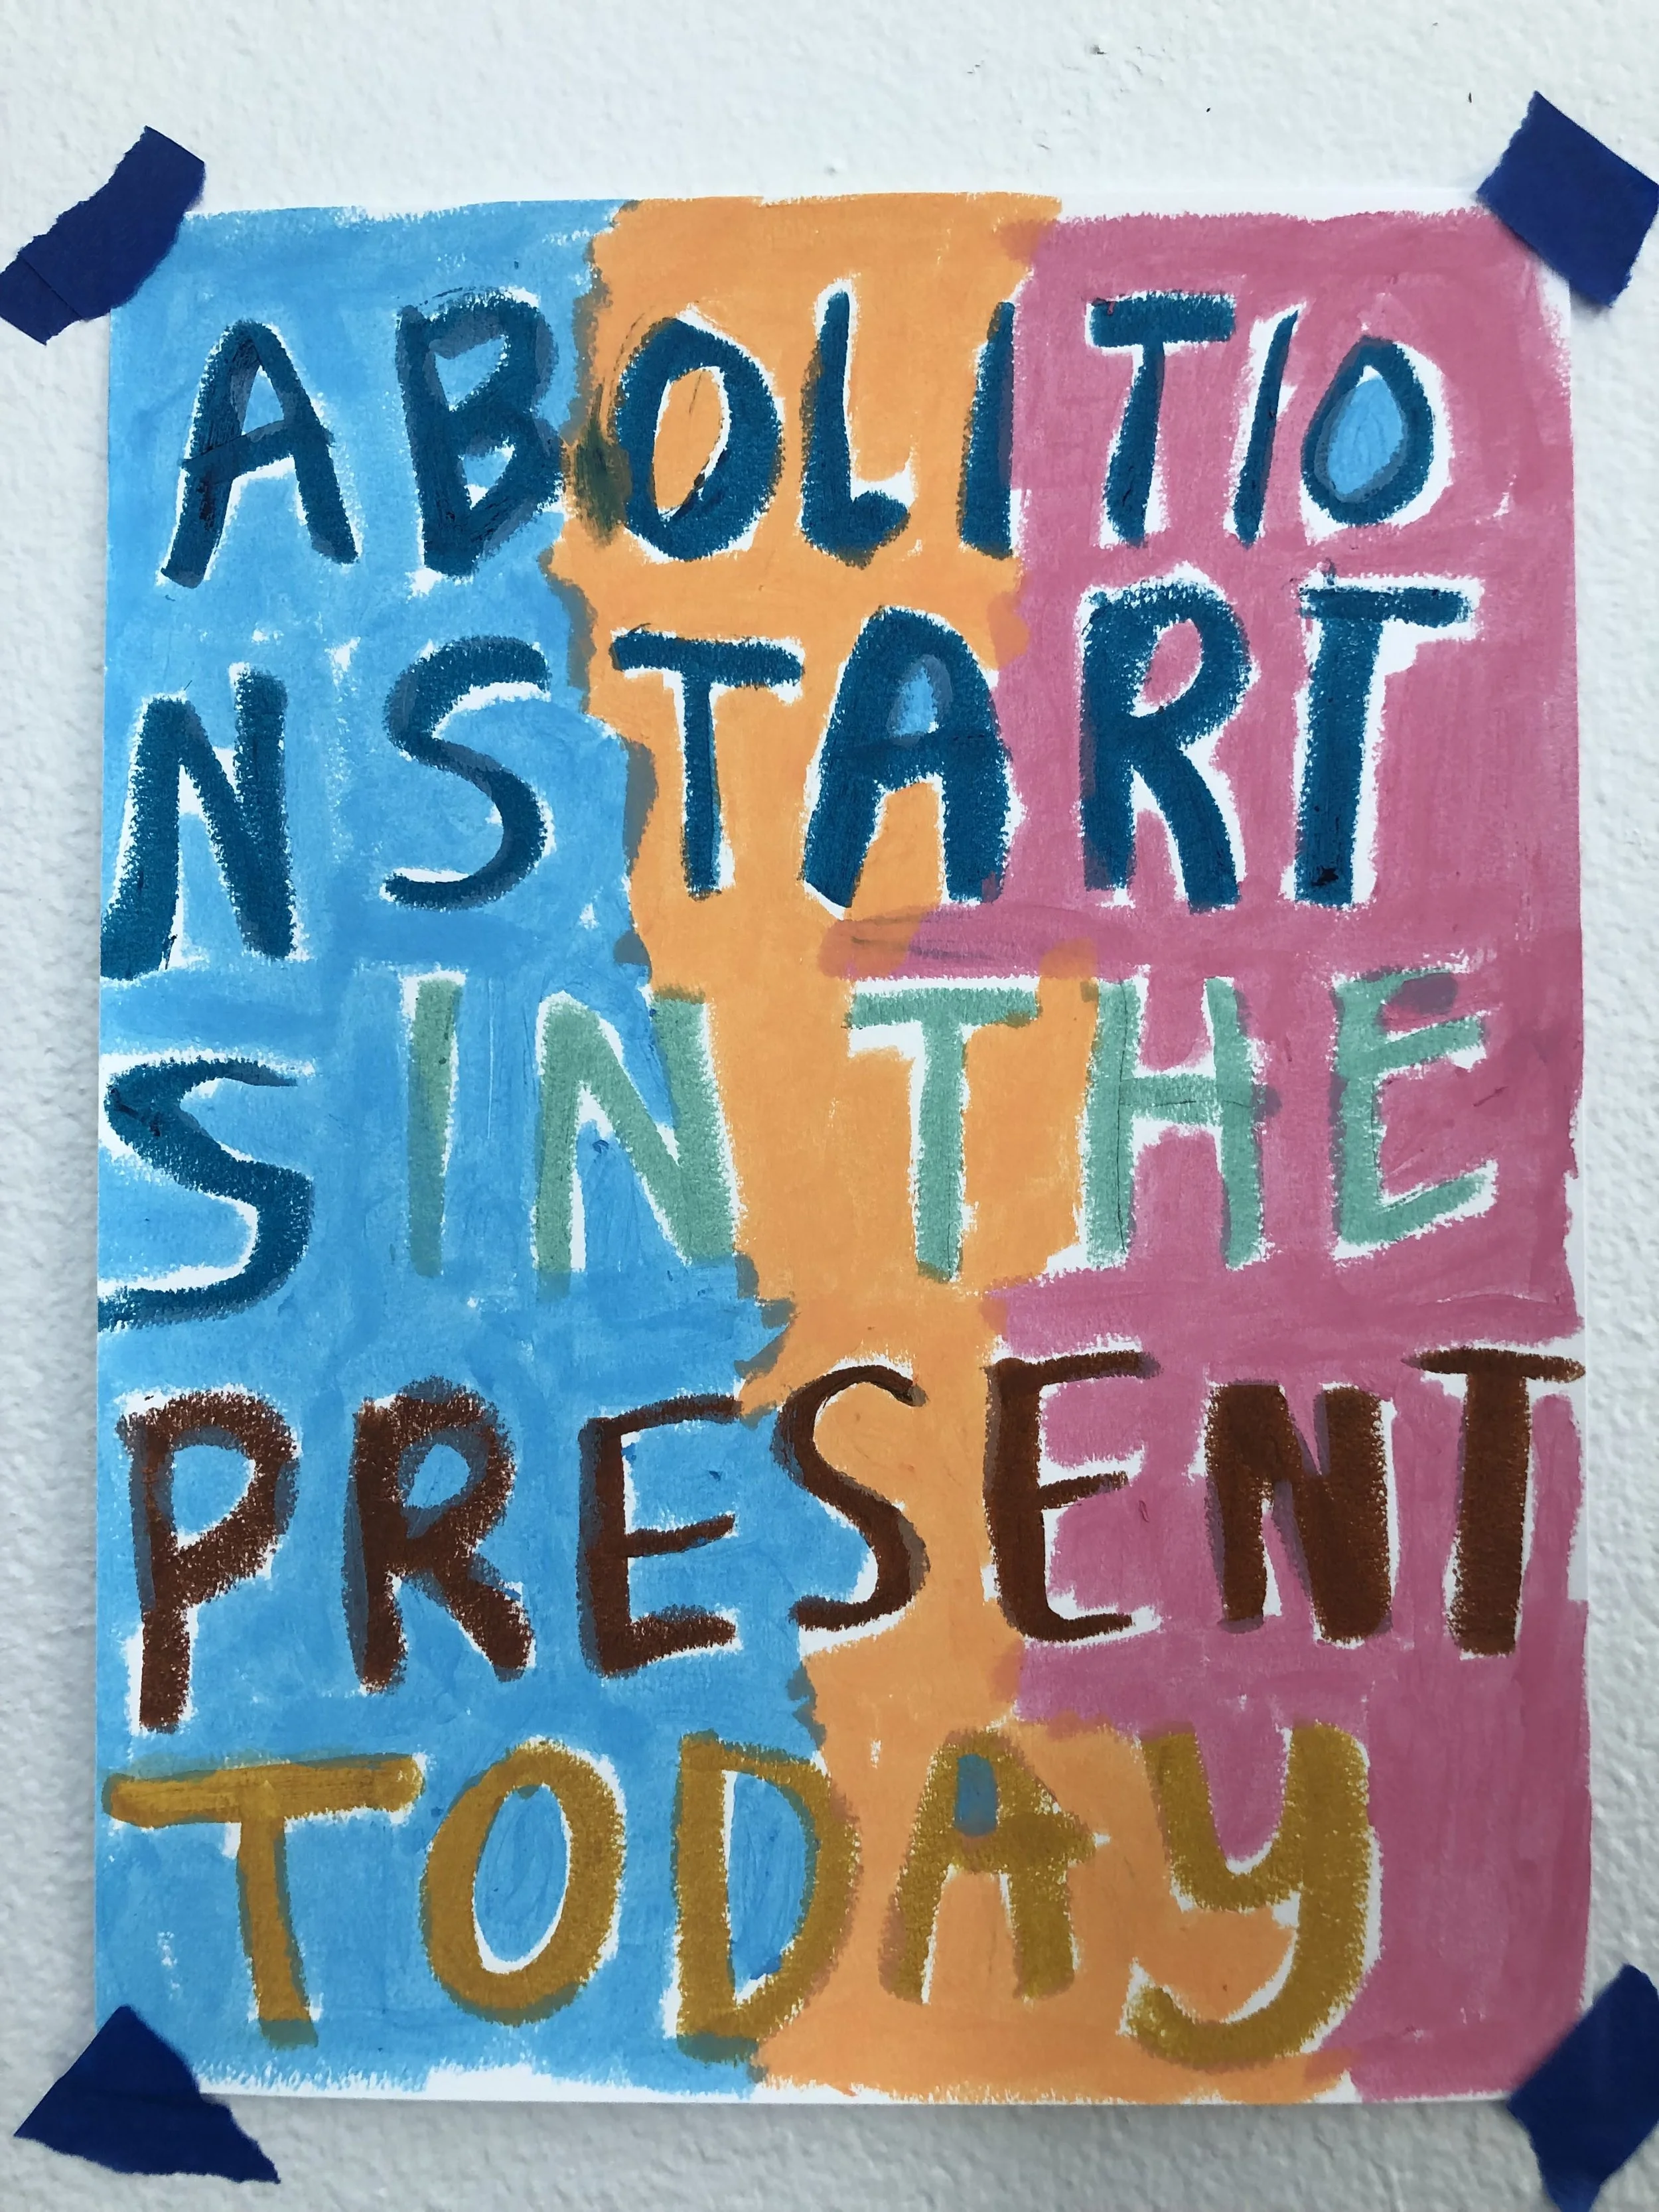 ABOLITIO
NSTART
SIN THE
PRESENT
TODAY